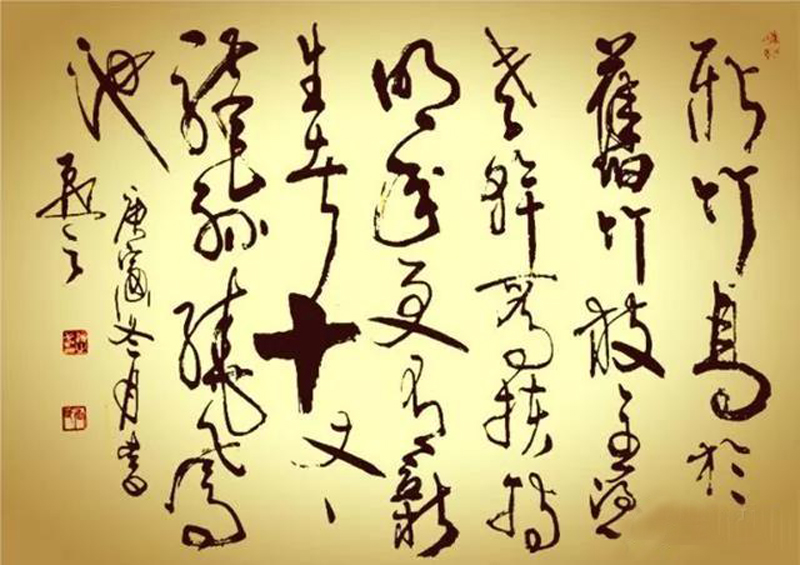 新竹高於
舊竹枝全憑
老幹為扶持
明年更有新
生者十丈
龍孫繞鳳
池
庚寅冬月書